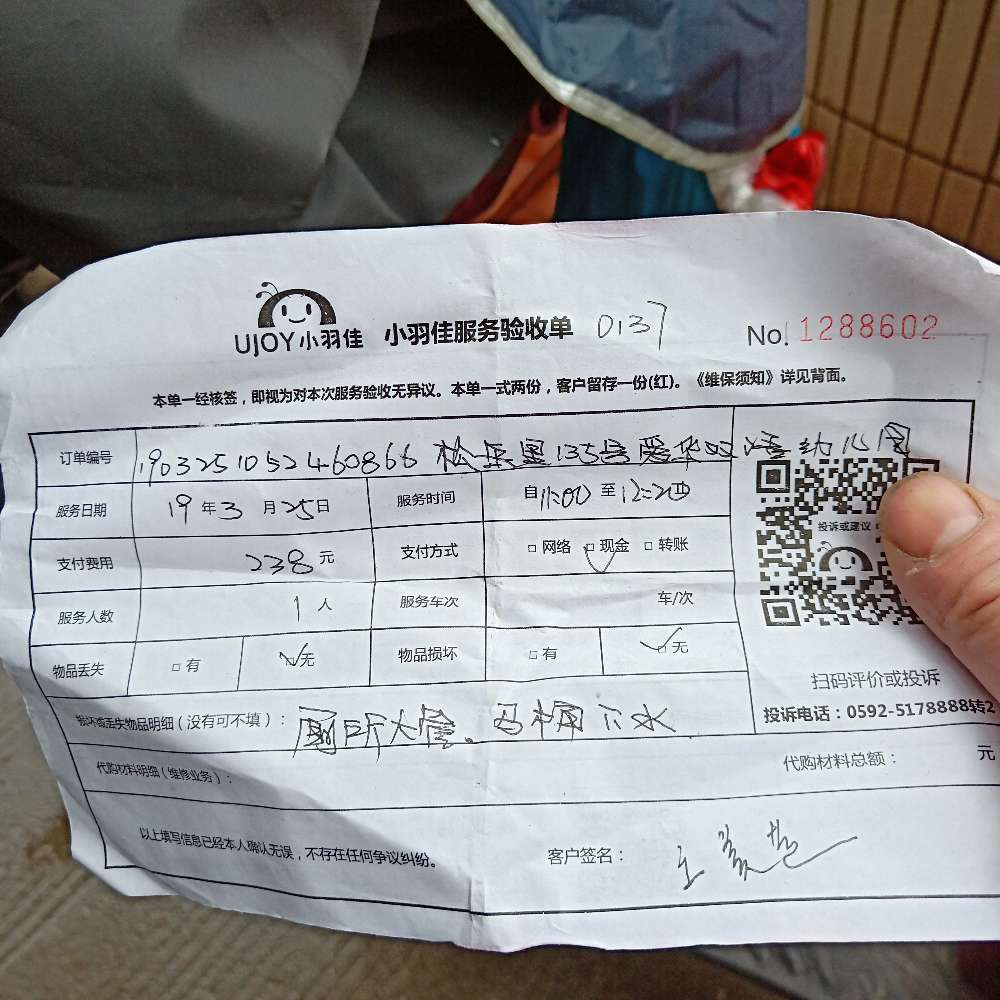 UJOY小羽佳 小羽佳服务验收单 0137 No. 1288602
本单一经核签，即视为对本次服务验收无异议。本单一式两份，客户留存一份(红)。《维保须知》详见背面。
订单编号 1903251052460866 135号爱华双语幼儿园
服务日期 19 年 3 月 25 日 服务时间 自 11:00 至 12:20
投诉或建议
支付费用 238 元 支付方式 □ 网络 □ 现金 □ 转账
服务人数 1 人 服务车次 车/次
物品丢失 □ 有 □ 无 物品损坏 □ 有 □ 无
扫码评价或投诉
损坏或丢失物品明细（没有可不填）： 厕所大管。马桶下水
投诉电话：0592-5178888转2
代购材料明细（维修业务）： 代购材料总额： 元
以上填写信息已经本人确认无误，不存在任何争议纠纷。 客户签名： 王